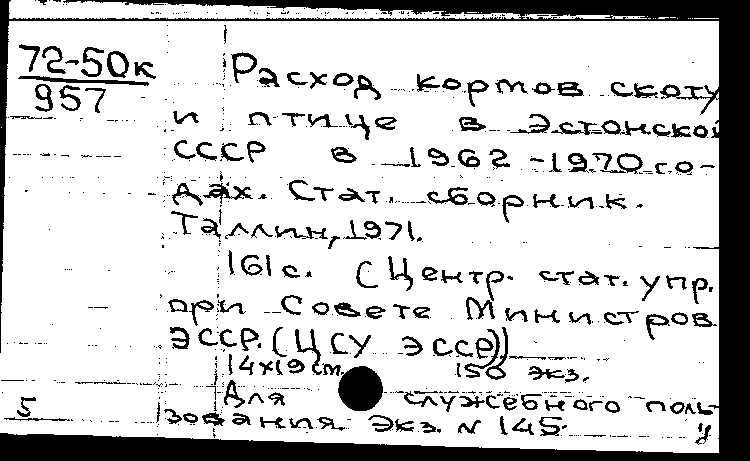 72-50к
957
Расход кормов скоту
и птице в Эстонской
СССР в 1962-1970 го-
дах. Стат. сборник.
Таллин, 1971.
161 с. (Центр. стат. упр.
при Совете Министров
ЭССР. (ЦСУ ЭССР))
14х19 см. 150 экз.
Для служебного поль-
зования. Экз. N 145.
5